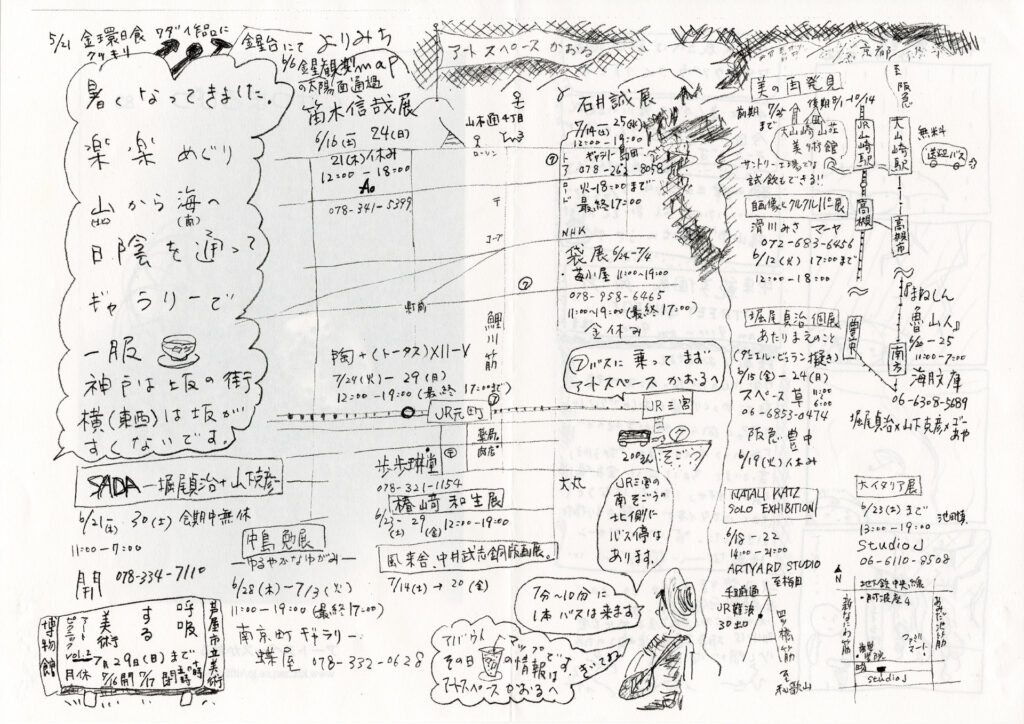 5/21 金環日食
クッキリ
金星台にて
よりみち
map
6/6 金星観望
の太陽面通過
アートスペース かおる
暑くなってきました。
楽楽 めぐり
山から海へ
(北) (南)
日陰を通って
ギャラリーで
一服
神戸は坂の街
横(東西)は坂が
すくないです。
笛木信哉展
6/16(土)ー24(日)
21(木)休み
12:00-18:00
Ao
078-341-5399
山本通4丁目
ローソン
〒
コープ
鯉川筋
石井誠展
7/14(土)ー25(水)
12:00-19:00
ギャラリー島田
078-262-8058
火-18:00まで
最終17:00
トアロード
NHK
袋展 6/24-7/4
・苺小屋 11:00〜19:00
078-958-6465
11:00〜19:00(最終17:00)
金休み
陶+(トータス)XII-V
7/24(火)ー29(日)
12:00-19:00(最終17:00まで)
⑦バスに乗ってまず
アートスペース かおるへ
JR元町
JR三宮
200円
そごう
大丸
JR三宮の
南そごうの
北側に
バス停は
あります。
7分〜10分に
1本バスは来ます
歩歩琳堂
078-321-1154
椿崎和生展
6/23(土)-29(金) 12:00-19:00
風来舎、中井武志銅版画展。
7/14(土)→20(金)
SADAー堀尾貞治+山下克彦ー
6/21(木)-30(土) 会期中無休
11:00-19:00
開 078-334-7110
中島勉展
ーゆるやかなゆがみー
6/28(木)ー7/3(火)
11:00-19:00(最終17:00)
南京町ギャラリー
蝶屋 078-332-0628
芦屋市立美術
博物館
呼吸
する
美術
アート
ピクニック
vol.2
7月29日(日)まで
月休 7/16開 7/17閉
アバウト
アップ
その日の情報は
アートスペース かおるへ
京都
美の再発見
前期 7/25まで
後期 8/1-10/14
大山崎山荘
美術館
サントリー工場では
試飲もできる!!
至阪急
JR山崎駅
大山崎駅
無料
送迎バス
高槻
高槻市
自画像とクルクルパー展
滑川みさ マーヤ
072-683-6456
6/12(火) 17:00まで
12:00-18:00
堀尾貞治 個展
あたりまえのこと
(ダニエル・ビュラン擬き)
6/15(金)-24(日)
スペース草 11:00
6:00
06-6853-0474
阪急 豊中
6/19(火)休み
豊中
南方
『まねしん
魯山人』
6/20-25
11:00-7:00
海月文庫
06-6308-5689
堀尾貞治×山下克彦×ゴー
あや
NATALI KATZ
SOLO EXHIBITION
6/18-22
14:00-21:00
ARTYARD STUDIO
至梅田
千日前通
JR難波
30出口
四ツ橋筋
至和歌山
大イタリア展
6/23(土)まで
13:00-19:00
studio J
06-6110-8508
N
地下鉄 中央線
・阿波座4
新なにわ筋
あみだ池筋
ファミリーマート
studio J